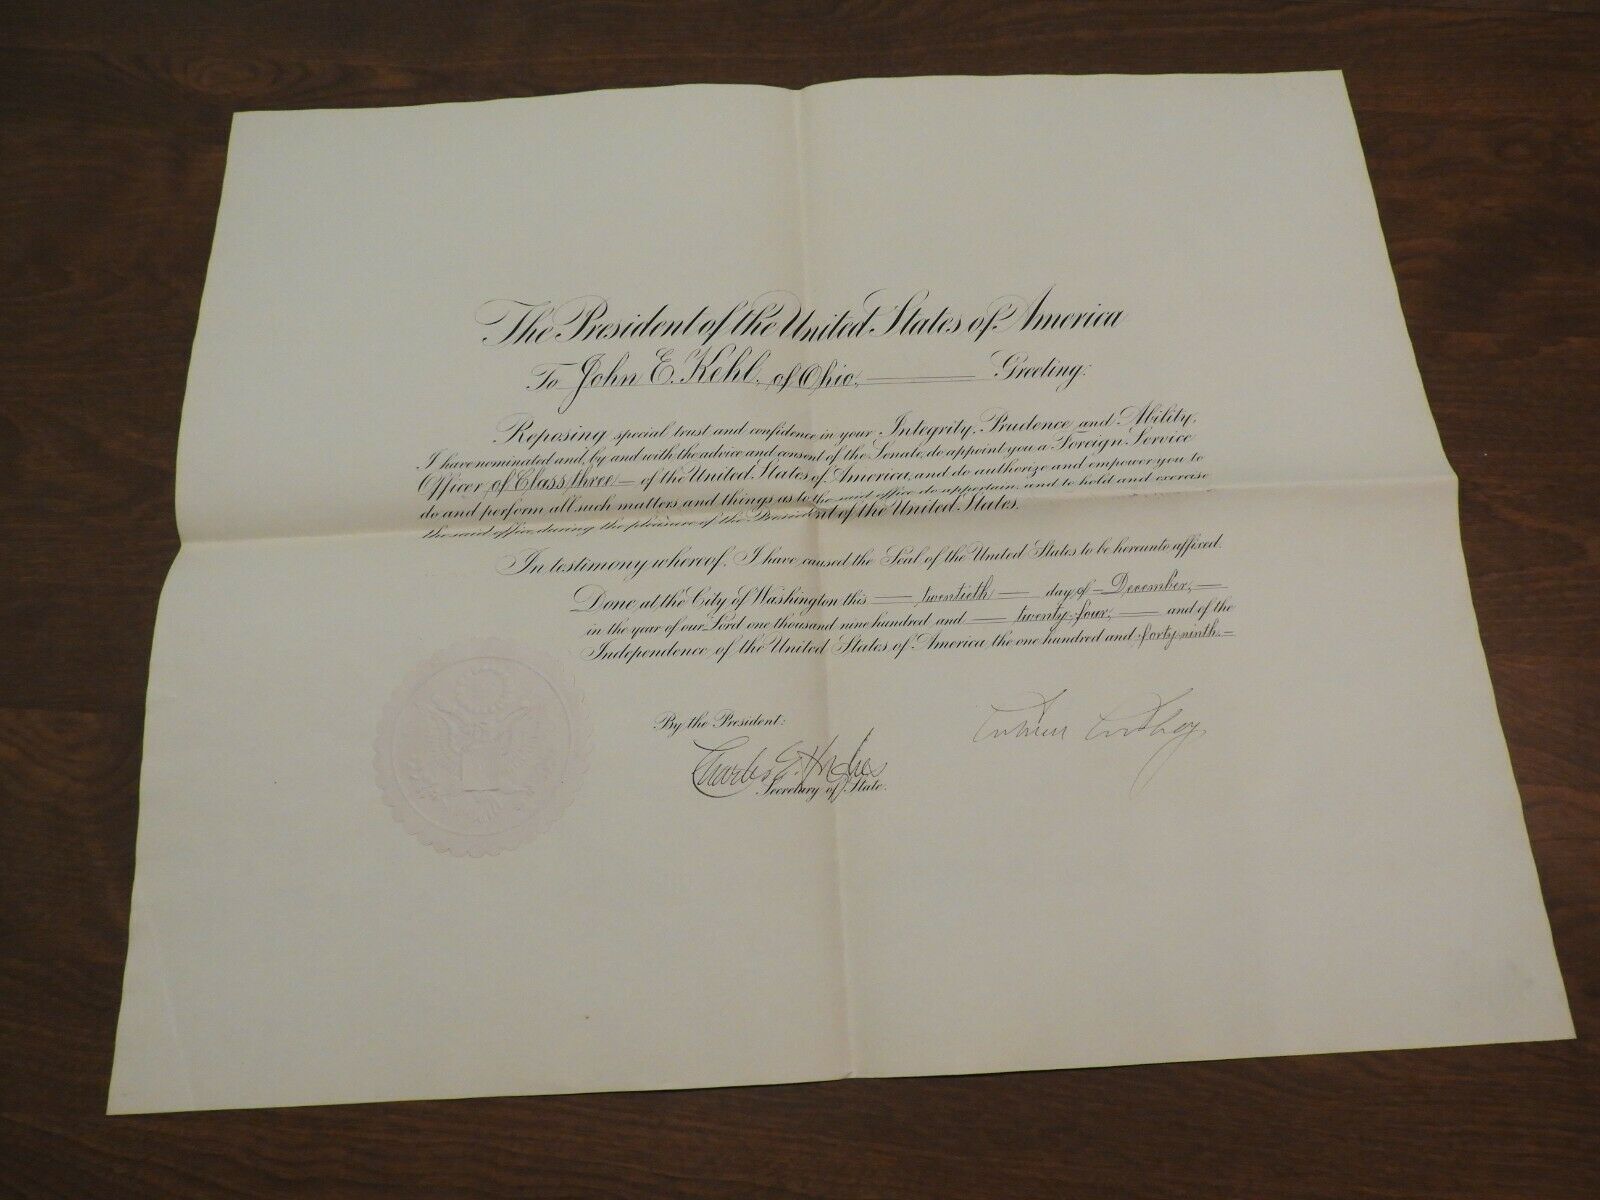 The President of the United States of America
To John E. Kehl, of Ohio, Greeting:
Reposing special trust and confidence in your Integrity, Prudence and Ability,
I have nominated and, by and with the advice and consent of the Senate, do appoint you a Foreign Service
Officer of Class three of the United States of America, and do authorize and empower you to
do and perform all such matters and things as to the said office do appertain, and to hold and exercise
the said office during the pleasure of the President of the United States.
In testimony whereof, I have caused the Seal of the United States to be hereunto affixed.
Done at the City of Washington this twentieth day of December,
in the year of our Lord one thousand nine hundred and twenty-four, and of the
Independence of the United States of America, the one hundred and forty-ninth.
By the President:
Charles E. Hughes
Secretary of State.